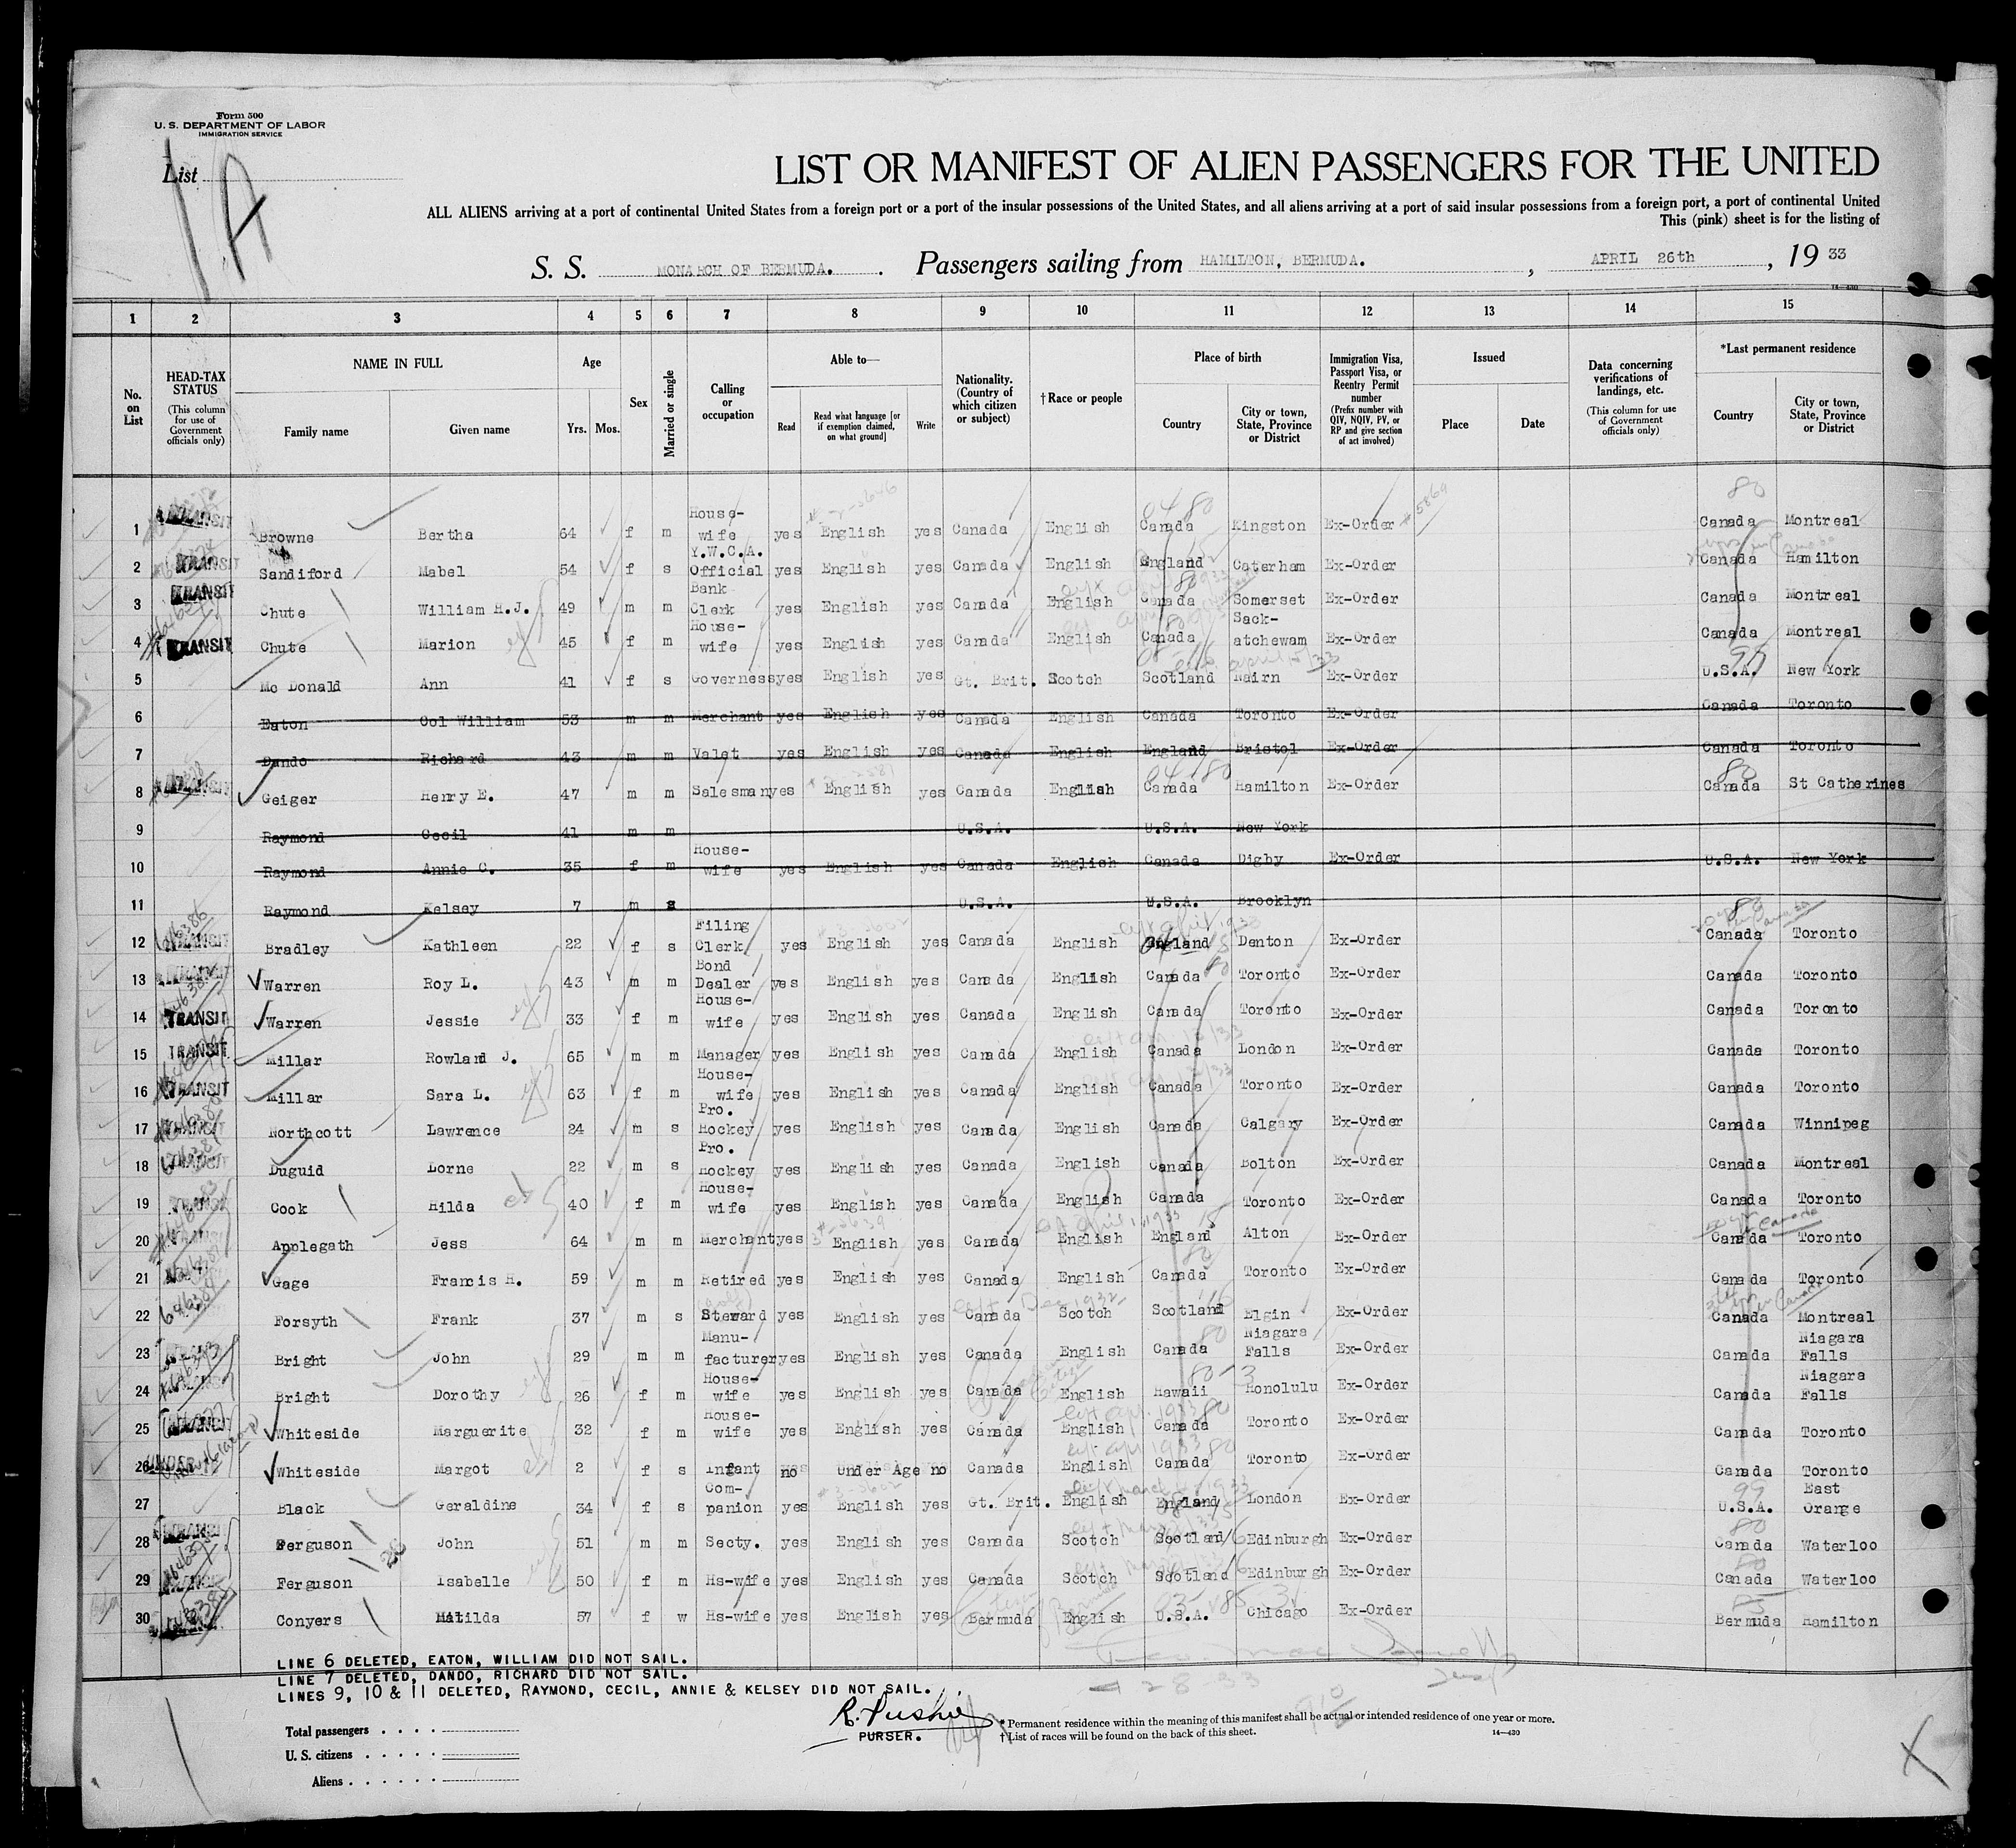 Form 500
U. S. DEPARTMENT OF LABOR
IMMIGRATION SERVICE
List
1A
LIST OR MANIFEST OF ALIEN PASSENGERS FOR THE UNITED
ALL ALIENS arriving at a port of continental United States from a foreign port or a port of the insular possessions of the United States, and all aliens arriving at a port of said insular possessions from a foreign port, a port of continental United
This (pink) sheet is for the listing of
S. S. MONARCH OF BERMUDA. Passengers sailing from HAMILTON, BERMUDA. , APRIL 26th , 19 33
1 2 3 4 5 6 7 8 9 10 11 12 13 14 15
No. on List
HEAD-TAX STATUS (This column for use of Government officials only)
NAME IN FULL Family name Given name
Age Yrs. Mos.
Sex
Married or single
Calling or occupation
Able to— Read Read what language [or if exemption claimed, on what ground] Write
Nationality. (Country of which citizen or subject)
†Race or people
Place of birth Country City or town, State, Province or District
Immigration Visa, Passport Visa, or Reentry Permit number (Prefix number with QIV, NQIV, PV, or RP and give section of act involved)
Issued Place Date
Data concerning verifications of landings, etc. (This column for use of Government officials only)
*Last permanent residence Country City or town, State, Province or District
1 TRANSIT Browne Bertha 64 f m House-wife yes English yes Canada English Canada Kingston Ex-Order Canada Montreal
2 TRANSIT Sandiford Mabel 54 f s Y.W.C.A. Official yes English yes Canada English England Caterham Ex-Order Canada Hamilton
3 TRANSIT Chute William H.J. 49 m m Bank Clerk yes English yes Canada English Canada Somerset Ex-Order Canada Montreal
4 TRANSIT Chute Marion 45 f m House-wife yes English yes Canada English Canada Sack-atchewam Ex-Order Canada Montreal
5 Mc Donald Ann 41 f s Governess yes English yes Gt. Brit. Scotch Scotland Nairn Ex-Order U.S.A. New York
6 Eaton Col William 53 m m Merchant yes English yes Canada English Canada Toronto Ex-Order Canada Toronto
7 Dando Richard 43 m m Valet yes English yes Canada English England Bristol Ex-Order Canada Toronto
8 TRANSIT Geiger Henry E. 47 m m Salesman yes English yes Canada English Canada Hamilton Ex-Order Canada St Catherines
9 Raymond Cecil 41 m m U.S.A. U.S.A. New York
10 Raymond Annie C. 35 f m House-wife yes English yes Canada English Canada Digby Ex-Order U.S.A. New York
11 Raymond Kelsey 7 m s U.S.A. U.S.A. Brooklyn
12 TRANSIT Bradley Kathleen 22 f s Filing Clerk yes English yes Canada English England Denton Ex-Order Canada Toronto
13 TRANSIT Warren Roy L. 43 m m Bond Dealer yes English yes Canada English Canada Toronto Ex-Order Canada Toronto
14 TRANSIT Warren Jessie 33 f m House-wife yes English yes Canada English Canada Toronto Ex-Order Canada Toronto
15 TRANSIT Millar Rowland J. 65 m m Manager yes English yes Canada English Canada London Ex-Order Canada Toronto
16 TRANSIT Millar Sara L. 63 f m House-wife yes English yes Canada English Canada Toronto Ex-Order Canada Toronto
17 TRANSIT Northcott Lawrence 24 m s Pro. Hockey yes English yes Canada English Canada Calgary Ex-Order Canada Winnipeg
18 TRANSIT Duguid Lorne 22 m s Pro. Hockey yes English yes Canada English Canada Bolton Ex-Order Canada Montreal
19 TRANSIT Cook Hilda 40 f m House-wife yes English yes Canada English Canada Toronto Ex-Order Canada Toronto
20 TRANSIT Applegath Jess 64 m m Merchant yes English yes Canada English England Alton Ex-Order Canada Toronto
21 Gage Francis H. 59 m m Retired yes English yes Canada English Canada Toronto Ex-Order Canada Toronto
22 Forsyth Frank 37 m s Steward yes English yes Canada Scotch Scotland Elgin Ex-Order Canada Montreal
23 Bright John 29 m m Manu-facturer yes English yes Canada English Canada Niagara Falls Ex-Order Canada Niagara Falls
24 Bright Dorothy 26 f m House-wife yes English yes Canada English Hawaii Honolulu Ex-Order Canada Niagara Falls
25 Whiteside Marguerite 32 f m House-wife yes English yes Canada English Canada Toronto Ex-Order Canada Toronto
26 UNDER Whiteside Margot 2 f s Infant no Under Age no Canada English Canada Toronto Ex-Order Canada Toronto
27 Black Geraldine 34 f s Com-panion yes English yes Gt. Brit. English England London Ex-Order U.S.A. East Orange
28 TRANSIT Ferguson John 51 m m Secty. yes English yes Canada Scotch Scotland Edinburgh Ex-Order Canada Waterloo
29 Ferguson Isabelle 50 f m Hs-wife yes English yes Canada Scotch Scotland Edinburgh Ex-Order Canada Waterloo
30 Conyers Matilda 57 f w Hs-wife yes English yes Bermuda English U.S.A. Chicago Ex-Order Bermuda Hamilton
LINE 6 DELETED, EATON, WILLIAM DID NOT SAIL.
LINE 7 DELETED, DANDO, RICHARD DID NOT SAIL.
LINES 9, 10 & 11 DELETED, RAYMOND, CECIL, ANNIE & KELSEY DID NOT SAIL.
Total passengers
U. S. citizens
Aliens
R. Pushie
PURSER.
* Permanent residence within the meaning of this manifest shall be actual or intended residence of one year or more.
† List of races will be found on the back of this sheet.
14—430